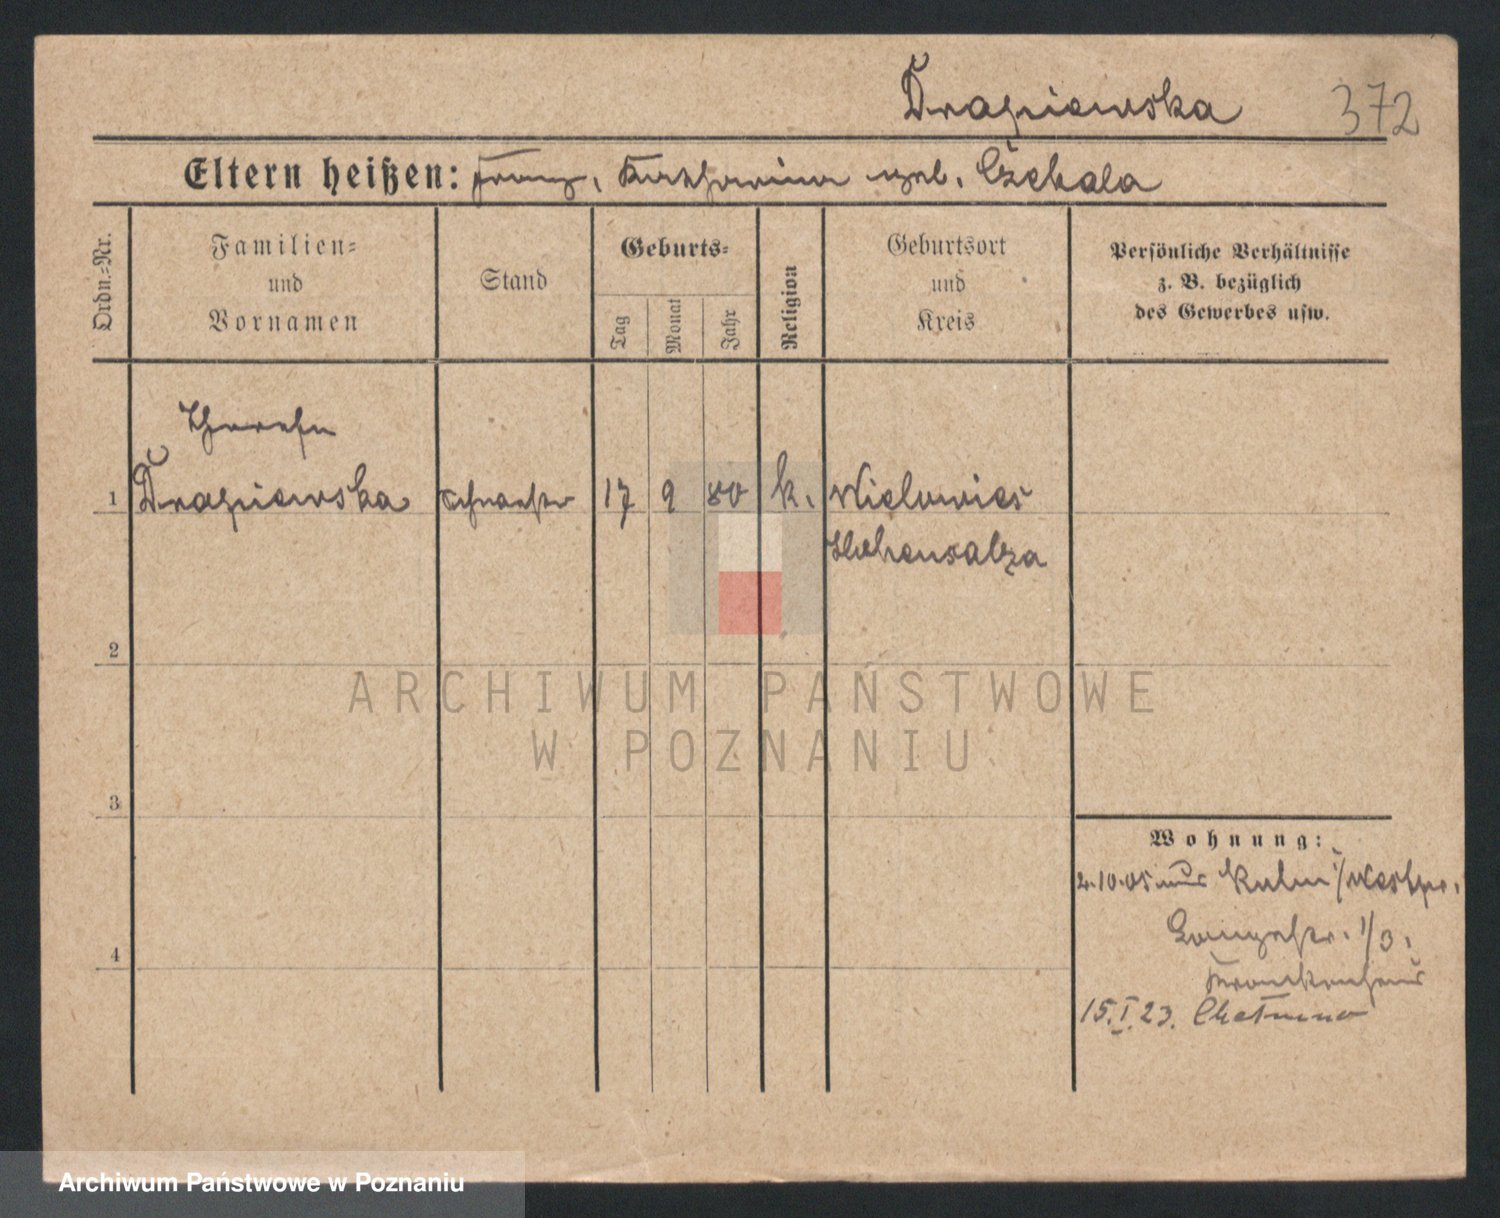 Drapiewska 372
Eltern heißen: Franz, Katharina geb. Czekala
Ordn.-Nr.
Familien-
und
Vornamen
Stand
Geburts-
Tag
Monat
Jahr
Religion
Geburtsort
und
Kreis
Persönliche Verhältnisse
z. B. bezüglich
des Gewerbes usw.
Therese
1 Drapiewska Schwester 17 9 80 k. Wielowies
Hohensalza
2
3
4
Wohnung:
2.10.05 aus Kulm i/Westpr.
1/3.
Krankenhaus
15.I.23. Chełmno
ARCHIWUM PAŃSTWOWE
W POZNANIU
Archiwum Państwowe w Poznaniu